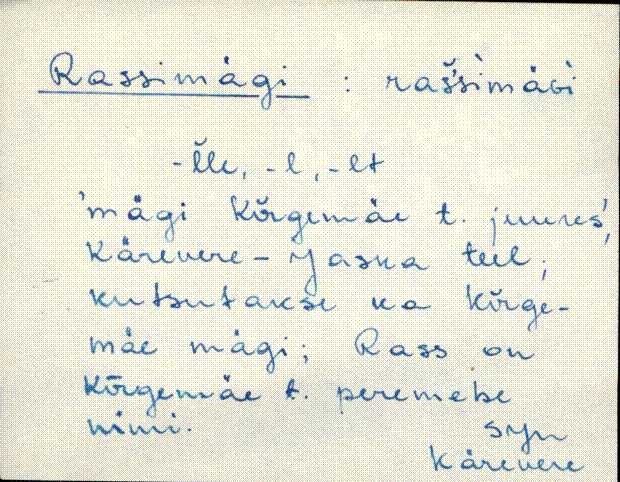 Rassimägi : raš̀s̀imäGì
-l̆le, -l, -lt
'mägi Kõrgemäe t. juures',
Kärevere - Jaska teel;
kutsutakse ka Kõrge-
mäe mägi; Rass on
Kõrgemäe t. peremehe
nimi.
SJn
Kärevere